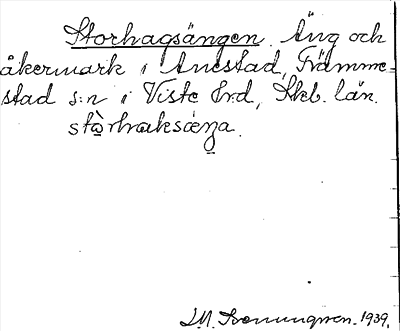 Storhagsängen. Äng och
åkermark i Anestad, Främme-
stad s:n i Viste hrd, Skb. län.
stårhaksæŋa.
1939.